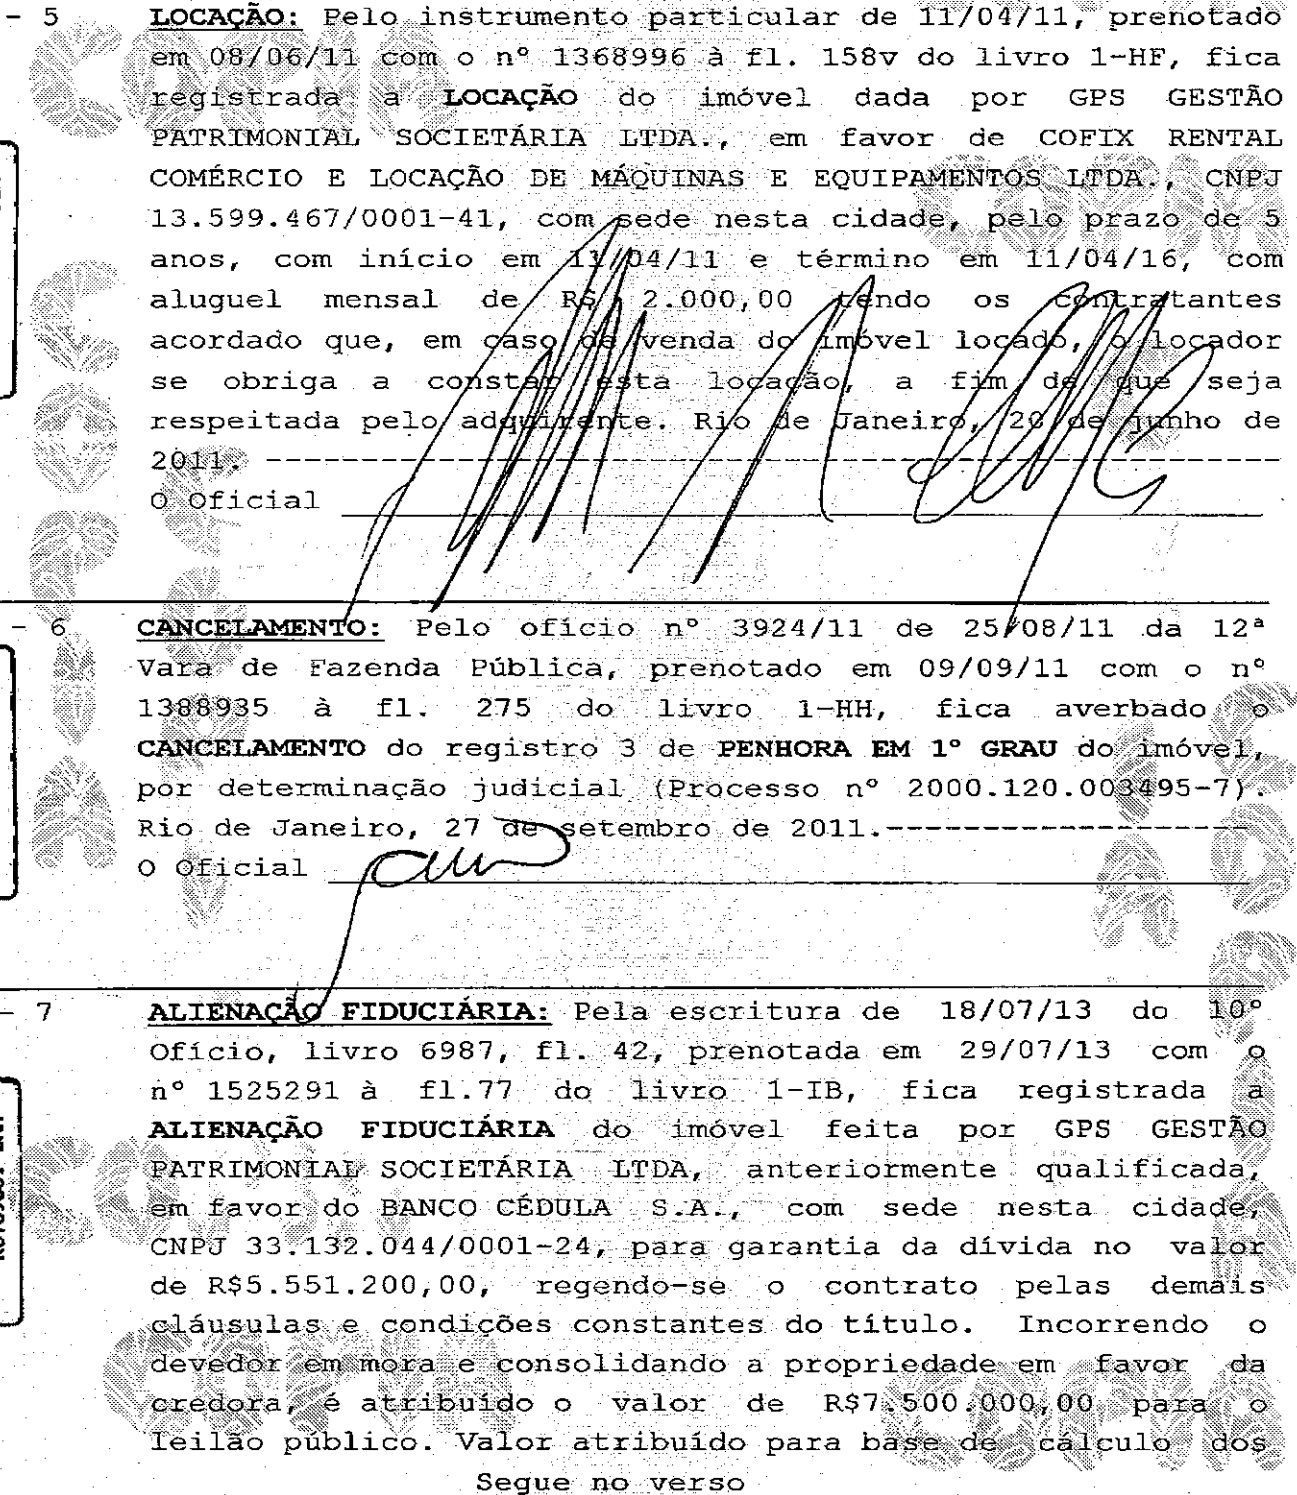 - 5 LOCAÇÃO: Pelo instrumento particular de 11/04/11, prenotado
em 08/06/11 com o nº 1368996 à fl. 158v do livro 1-HF, fica
registrada a LOCAÇÃO do imóvel dada por GPS GESTÃO
PATRIMONIAL SOCIETÁRIA LTDA., em favor de COFIX RENTAL
COMÉRCIO E LOCAÇÃO DE MÁQUINAS E EQUIPAMENTOS LTDA., CNPJ
13.599.467/0001-41, com sede nesta cidade, pelo prazo de 5
anos, com início em 11/04/11 e término em 11/04/16, com
aluguel mensal de R$ 2.000,00 tendo os contratantes
acordado que, em caso de venda do imóvel locado, o locador
se obriga a constar esta locação, a fim de que seja
respeitada pelo adquirente. Rio de Janeiro, 20 de junho de
2011. ----------------------------------------------------
O Oficial
- 6 CANCELAMENTO: Pelo ofício nº 3924/11 de 25/08/11 da 12ª
Vara de Fazenda Pública, prenotado em 09/09/11 com o nº
1388935 à fl. 275 do livro 1-HH, fica averbado o
CANCELAMENTO do registro 3 de PENHORA EM 1º GRAU do imóvel,
por determinação judicial (Processo nº 2000.120.003495-7).
Rio de Janeiro, 27 de setembro de 2011.-------------------
O Oficial
- 7 ALIENAÇÃO FIDUCIÁRIA: Pela escritura de 18/07/13 do 10º
Ofício, livro 6987, fl. 42, prenotada em 29/07/13 com o
nº 1525291 à fl.77 do livro 1-IB, fica registrada a
ALIENAÇÃO FIDUCIÁRIA do imóvel feita por GPS GESTÃO
PATRIMONIAL SOCIETÁRIA LTDA, anteriormente qualificada,
em favor do BANCO CÉDULA S.A., com sede nesta cidade,
CNPJ 33.132.044/0001-24, para garantia da dívida no valor
de R$5.551.200,00, regendo-se o contrato pelas demais
cláusulas e condições constantes do título. Incorrendo o
devedor em mora e consolidando a propriedade em favor da
credora, é atribuído o valor de R$7.500.000,00 para o
leilão público. Valor atribuído para base de cálculo dos
Segue no verso